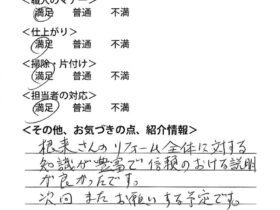 <職人のマナー>
満足 普通 不満
<仕上がり>
満足 普通 不満
<掃除・片付け>
満足 普通 不満
<担当者の対応>
満足 普通 不満
<その他、お気づきの点、紹介情報>
根来さんのリフォーム全体に対する
知識が豊富で信頼のおける説明
が良かったです。
次回またお願いする予定です。